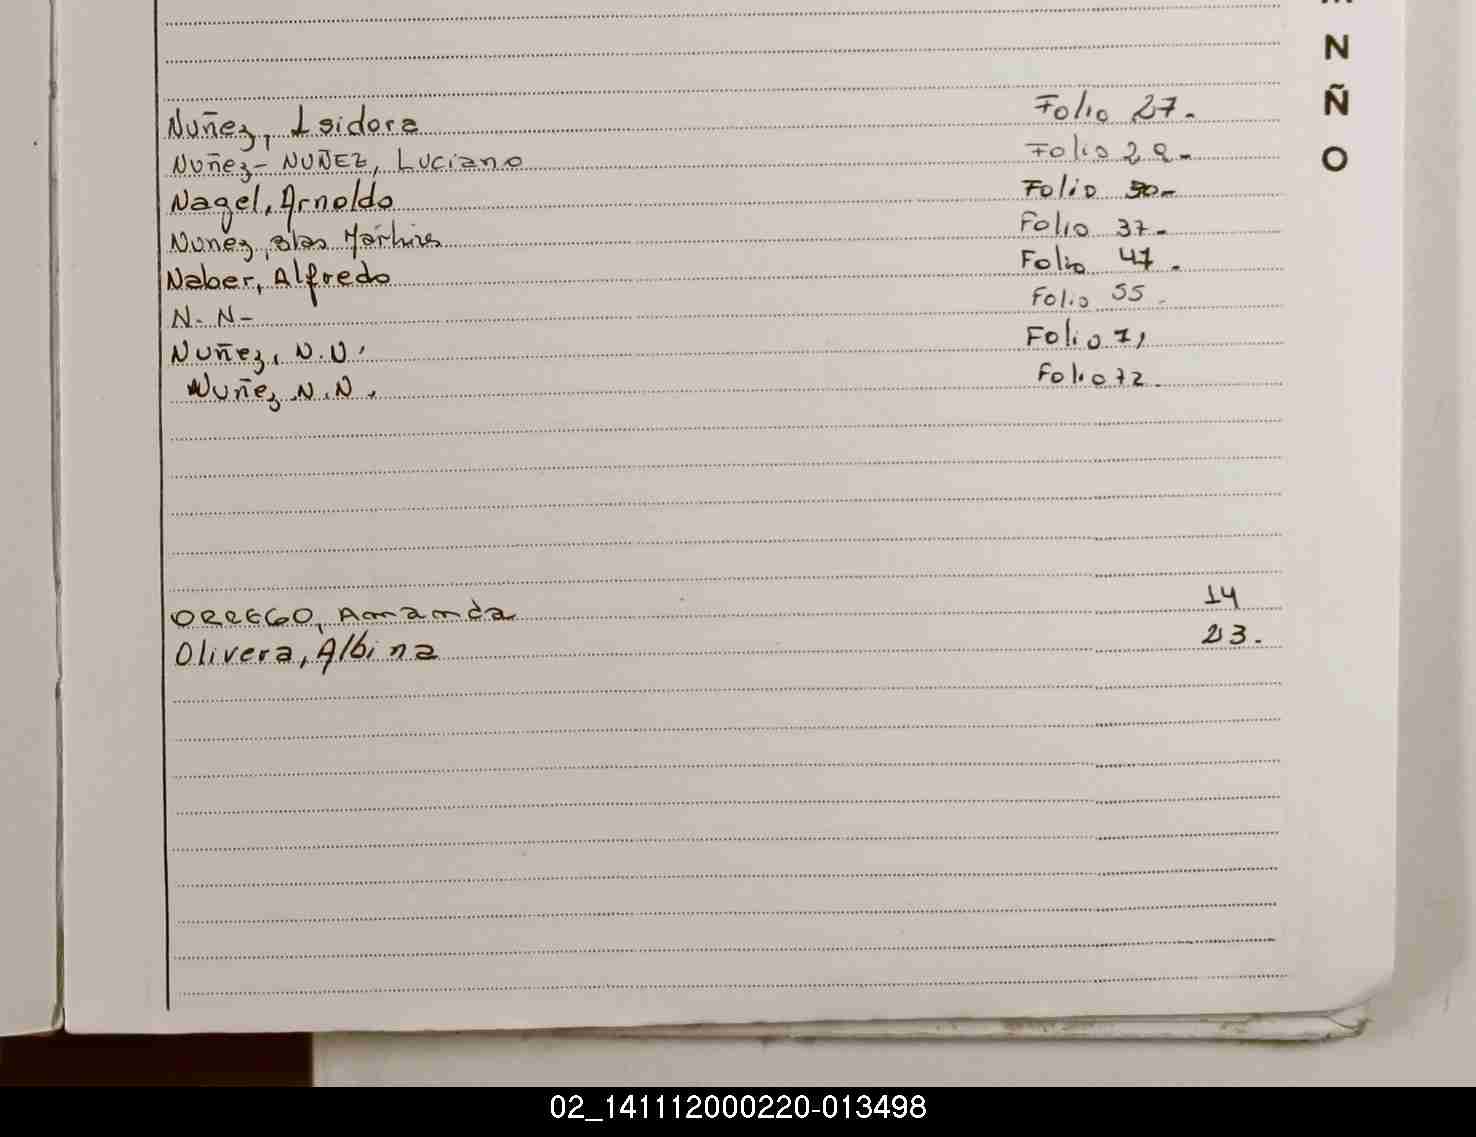 N
Ñ
O
Nuñez, Isidora Folio 27.
Nuñez-NUÑEZ, Luciano Folio 29-
Nagel, Arnoldo Folio 30-
Nunez, Blas Folio 37-
Naber, Alfredo Folio 47.
N-N- Folio 55-
Nuñez, N.N. Folio 71
Nuñez N.N. Folio 72.
ORREGO, Amanda 14
Olivera, Albina 23.
02_141112000220-013498